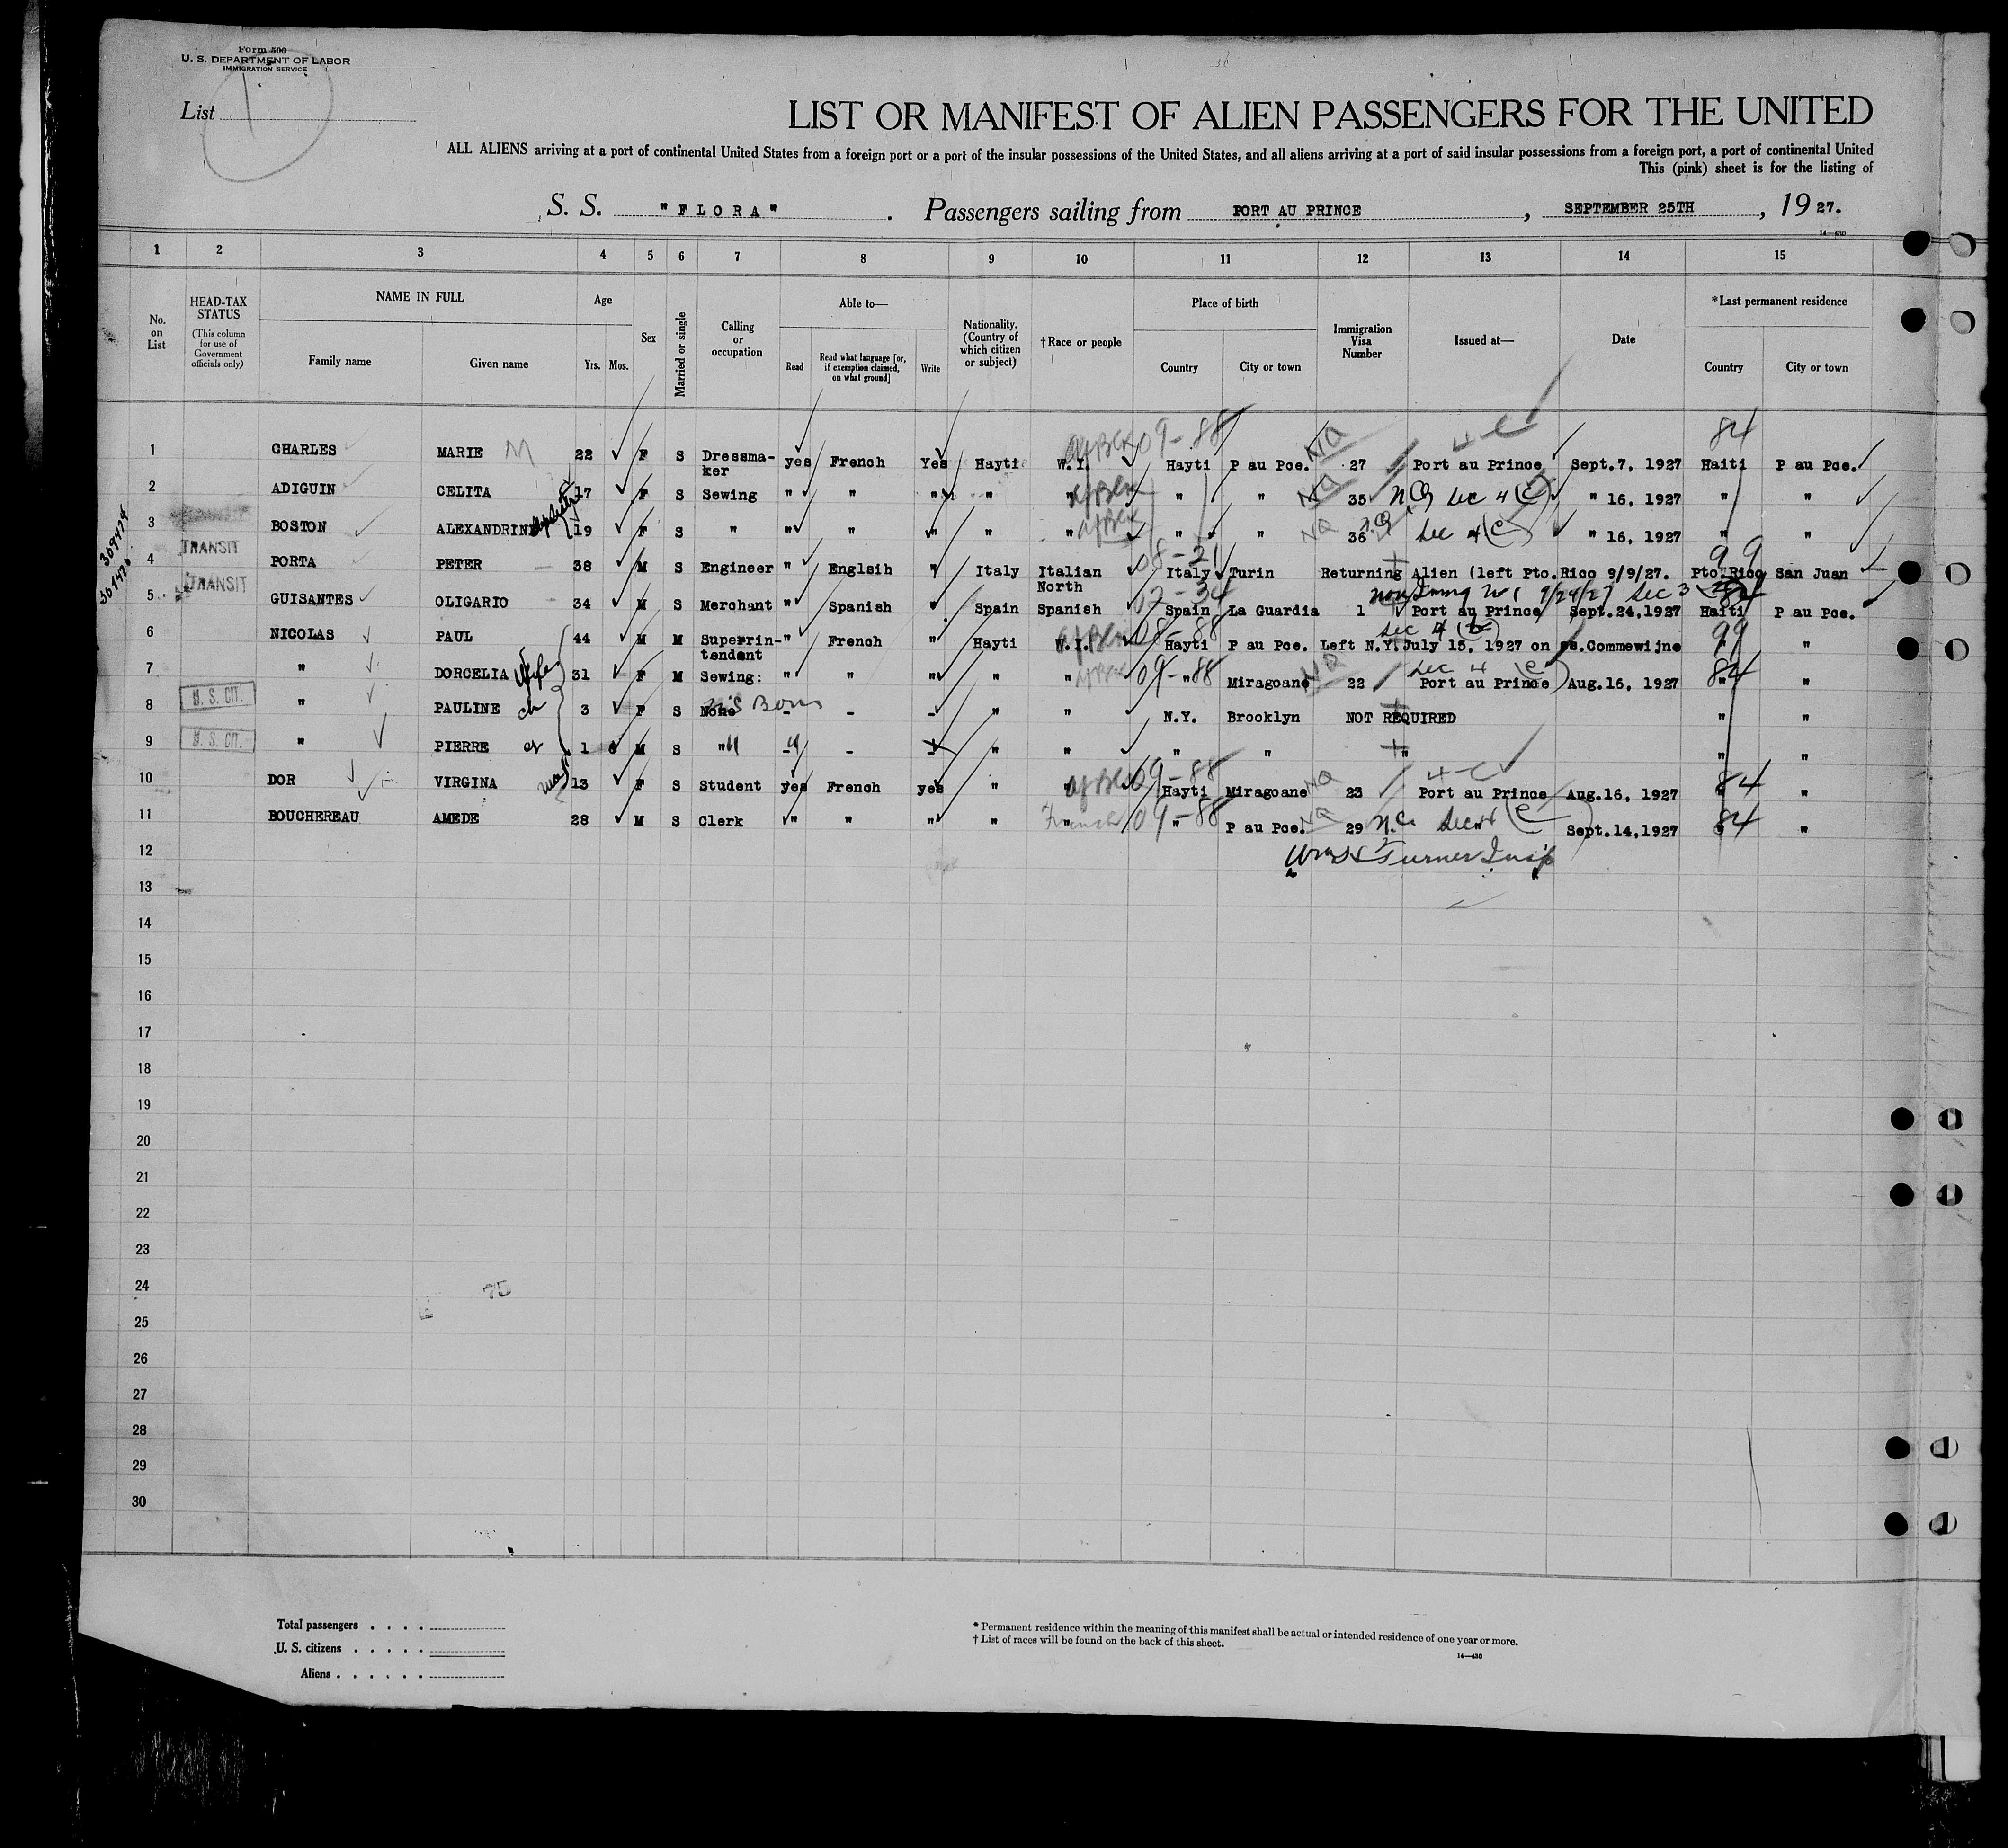 Form 500
U. S. DEPARTMENT OF LABOR
IMMIGRATION SERVICE
List 1
LIST OR MANIFEST OF ALIEN PASSENGERS FOR THE UNITED
ALL ALIENS arriving at a port of continental United States from a foreign port or a port of the insular possessions of the United States, and all aliens arriving at a port of said insular possessions from a foreign port, a port of continental United
This (pink) sheet is for the listing of
S. S. "FLORA" . Passengers sailing from PORT AU PRINCE , SEPTEMBER 25TH , 19 27.
14—430
1 2 3 4 5 6 7 8 9 10 11 12 13 14 15
No. on List
HEAD-TAX STATUS (This column for use of Government officials only)
NAME IN FULL
Family name
Given name
Age
Yrs. Mos.
Sex
Married or single
Calling or occupation
Able to—
Read
Read what language [or, if exemption claimed, on what ground]
Write
Nationality. (Country of which citizen or subject)
†Race or people
Place of birth
Country
City or town
Immigration Visa Number
Issued at—
Date
*Last permanent residence
Country
City or town
1 CHARLES MARIE M 22 F S Dressma-ker yes French Yes Hayti W.I. Af Blk 09-88 Hayti P au Pce. NQ 27 4-C Port au Prince Sept.7, 1927 84 Haiti P au Pce.
2 ADIGUIN CELITA 17 F S Sewing " " " " " Af Blk " " NQ 35 N.Q Sec 4 (C) " 16, 1927 " "
3 BOSTON ALEXANDRINE 19 F S " " " " " " Af Blk " " NQ 36 Sec 4 (C) " 16, 1927 " "
369474
TRANSIT
4 PORTA PETER 38 M S Engineer " Englsih " Italy Italian North 08-21 Italy Turin Returning Alien (left Pto.Rico 9/9/27. 99 Pto.Rico San Juan
TRANSIT
5 GUISANTES OLIGARIO 34 M S Merchant " Spanish Spain Spanish Spain La Guardia 1 Port au Prince Sept.24,1927 Haiti P au Pce.
6 NICOLAS PAUL 44 M M Superrin-tendant " French " Hayti W.I. Af Blk 08-88 Hayti P au Pce. Left N.Y.July 15, 1927 on ss.Commewijne 99 " "
7 " DORCELIA Wife 31 F M Sewing: " " " " " 09-88 " Miragoane NQ 22 Sec 4 (C) Port au Prince Aug.16, 1927 84 " "
U. S. CIT.
8 " PAULINE ch 3 F S None U.S Born - - - " " N.Y. Brooklyn NOT REQUIRED " "
U. S. CIT.
9 " PIERRE ch 1 6 M S " " - - - " " " " " " "
10 DOR VIRGINA 13 F S Student yes French yes " " Af Blk 09-88 Hayti Miragoane NQ 23 4-C Port au Prince Aug.16, 1927 84 " "
11 BOUCHEREAU AMEDE 28 M S Clerk " " " " " French 09-88 " P au Pce. NQ 29 Sec 4 (C) " Sept.14,1927 84 " "
12 Turner Insp
13
14
15
16
17
18
19
20
21
22
23
24 75
25
26
27
28
29
30
Total passengers . . . .
U. S. citizens . . . . .
Aliens . . . . . .
* Permanent residence within the meaning of this manifest shall be actual or intended residence of one year or more.
† List of races will be found on the back of this sheet.
14—430